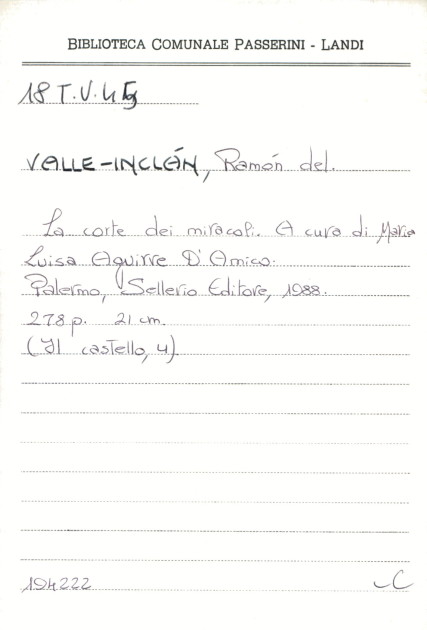 BIBLIOTECA COMUNALE PASSERINI - LANDI
18 T.V. 45
VALLE-INCLÁN, Ramón del.
La corte dei miracoli. A cura di Maria
Luisa Aguirre D'Amico.
Palermo, Sellerio Editore, 1988.
278 p. 21 cm.
(Il castello, 4).
194222
C